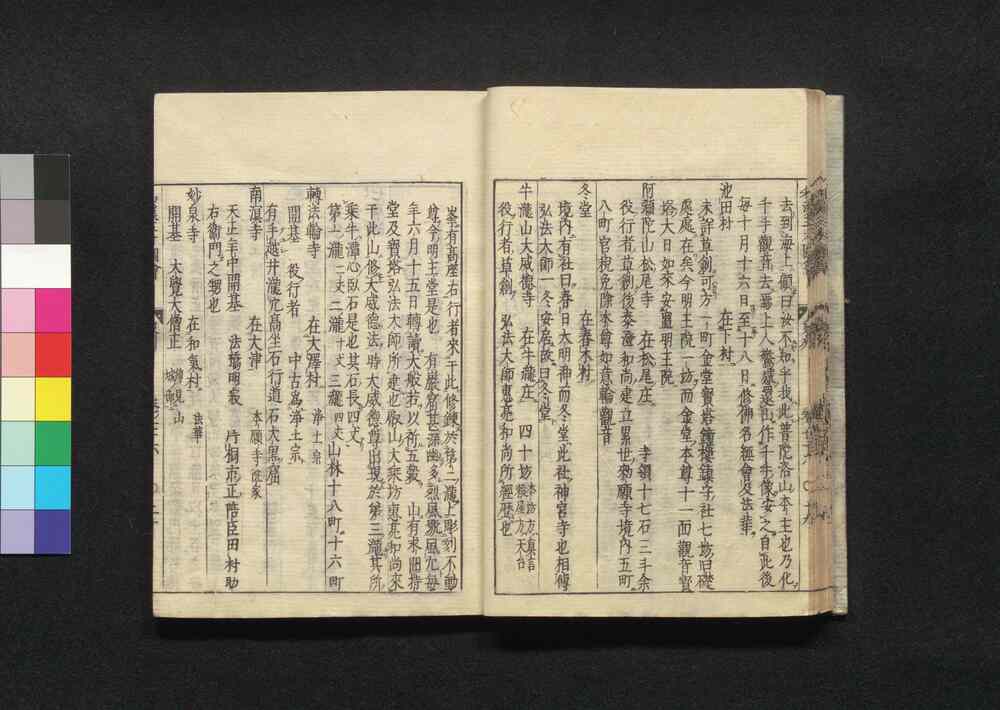 去到海上顧曰汝不知乎我此普陀洛山本主也乃化
千手觀音去海上人驚還山作千手像安之自此後
毎十月十六日至十八日修神名經會及法華
池田村 在下村
未詳草創可方一町金堂寳塔鐘樓鎮守社七坊旧礎
處處在矣今明王院一坊而金堂本尊十一面觀音寳
塔大日如来安置明王院
阿彌陀山松尾寺 在松尾庄 寺領十七石三斗余
役行者草創後泰澄和尚建立累世勅願寺境内五町
八町官税免除本尊如意輪觀音
冬堂 在春木村
境内有社曰春日大明神而冬堂此社神宮寺也相傳
弘法大師一冬安居故曰冬堂
牛瀧山大威德寺 在牛瀧庄 四十坊 本坊方真言 穀屋方天台
役行者草創 弘法大師惠亮和尚所經歴也
峯有高座石行者来于此修錬於第二瀧上彫刻不動
尊今明王堂是也 有巖窟甚深幽多烈風號風穴毎
年六月十五日轉讀大般若以祈五穀 山有米佃搢
堂及寳塔弘法大師所建也叡山大乘坊惠亮和尚来
于此山修大威德法時大威德尊出現於第三瀧其所
乘牛潭心臥石是也其石長四丈
第一瀧 二丈 二瀧 十丈 三瀧 四丈 山林十八町十六町
轉法輪寺 在大澤村 浄土宗
開基 役行者 中古爲浄土宗
有手越井瀧穴高坐石行道石大黒窟
南溟寺 在大津 本願寺派家
天正年中開基 法橋明教 片桐市正暗臣田村助
右衞門之甥也
妙泉寺 在和氣村 法華
開基 大覺大僧正